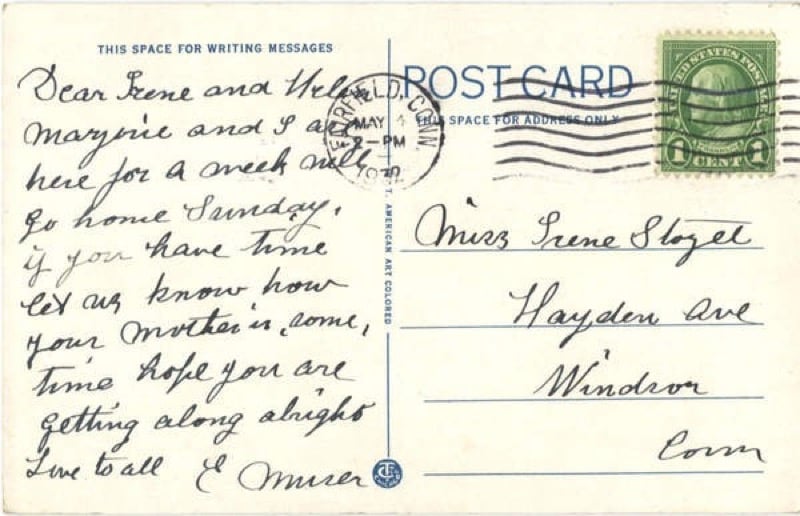 THIS SPACE FOR WRITING MESSAGES
Dear Irene and
Marjorie and I
here for a week will
go home Sunday.
if you have time
let us know how
your mother is, some,
time hope you are
getting along alright
Love to all E
FAIRFIELD, CONN.
MAY
2-PM
1932
POST CARD
THIS SPACE FOR ADDRESS ONLY
UNITED STATES POSTAGE
1 CENT 1
T. AMERICAN ART COLORED
Miss Irene
Hayden Ave
Windsor
Conn